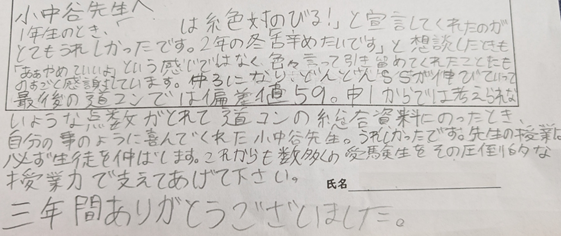 小中谷先生へ
1年生のとき、 は絶対のびる!」と宣言してくれたのが
とてもうれしかったです。2年の冬「辞めたいです」と想談したときも
「ああやめていいよ」という感じではなく、色々言って引き留めてくれたこと
ものすごく感謝しています。中3になり、どんどんSSが伸びていって
最後の道コンでは偏差値59。中1からでは考えられな
いような点数がとれて道コンの総合資料にのったとき、
自分の事のように喜んでくれた小中谷先生。うれしかったです。先生の授業は
必ず生徒を伸ばします。これからも数多くの受験生をその圧倒的な
授業力で支えてあげて下さい。
氏名
三年間ありがとうございました。